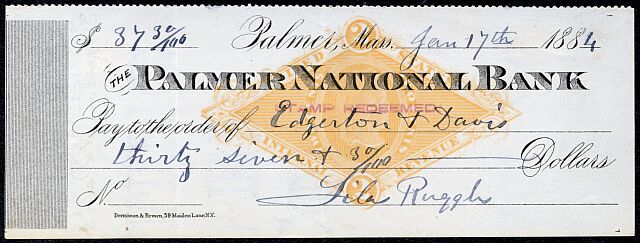 $ 37 30/100 Palmer, Mass. Jan 17th 1884
THE PALMER NATIONAL BANK
STAMP REDEEMED
Pay to the order of Edgerton & Davis
thirty seven & 30/100 Dollars
No.
Dennison & Brown, 59 Maiden Lane, N.Y.